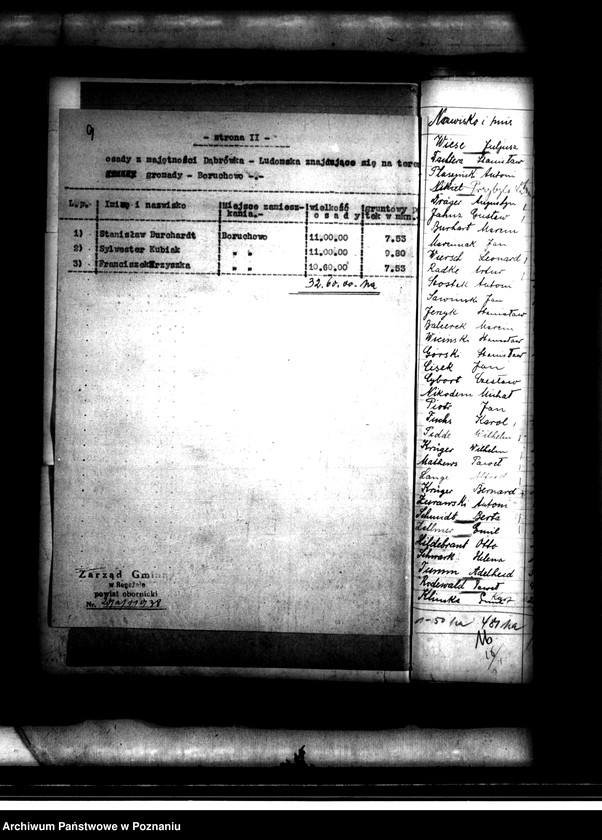 9
- strona II -
osady z majętności Dąbrówka - Ludomska znajdujące się na teren
gromady - Boruchowo -.-
L.p. Imię i nazwisko Miejsce zamiesz- kania.- wielkość o s a d y gruntowy p tek w mm.
1) Stanisław Burchardt Boruchowo 11.00.00 7.53
2) Sylwester Kubiak " " 11.00.00 9.80
3) Franciszek Krzyszka " " 10.60.00 7.53
32.60.00 ha
Zarząd Gminn
w Rogoźnie
powiat obornicki
Nr.
Nazwisko i imię
Wiese Juljusz
Stanisław
Ptaszynik Antoni
Dräger Augustyn
Jahns Gustaw
Burhart Marcin
Marciniak Jan
Wiersch Leonard
Radke Artur
Szostak Antoni
Sawinski Jan
Jenyk Stanisław
Balcerek Marcin
Wicinski Stanisław
Górski Stanisław
Cisek Jan
Cybort Czesław
Nikodem Michał
Piotr Jan
Fuchs Karol
Tidde Wilhelm
Krüger Wilhelm
Mathews Paweł
Lange Alfred
Krüger Bernard
Żurawski Antoni
Schmidt Berta
Zellmer Emil
Hildebrant Otto
Schwark Helena
Tumm Adelheid
Rodewald Paweł
Klinska
No
Archiwum Państwowe w Poznaniu